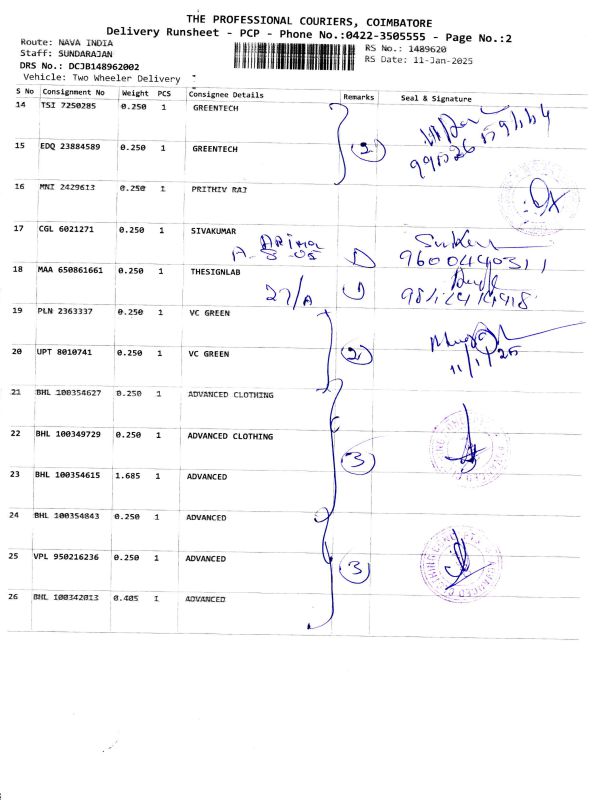 THE PROFESSIONAL COURIERS, COIMBATORE
Delivery Runsheet - PCP - Phone No.:0422-3505555 - Page No.:2
Route: NAVA INDIA RS No.: 1489620
Staff: SUNDARAJAN RS Date: 11-Jan-2025
DRS No.: DCJB148962002
Vehicle: Two Wheeler Delivery
S No Consignment No Weight PCS Consignee Details Remarks Seal & Signature
14 TSI 7250285 0.250 1 GREENTECH
15 EDQ 23884589 0.250 1 GREENTECH 2
16 MNI 2429613 0.250 1 PRITHIV RAJ
17 CGL 6021271 0.250 1 SIVAKUMAR
9600440311
18 MAA 650861661 0.250 1 THESIGNLAB
27/A 1
19 PLN 2363337 0.250 1 VC GREEN
20 UPT 8010741 0.250 1 VC GREEN 2 11/1/25
21 BHL 100354627 0.250 1 ADVANCED CLOTHING
22 BHL 100349729 0.250 1 ADVANCED CLOTHING 3
23 BHL 100354615 1.685 1 ADVANCED
24 BHL 100354843 0.250 1 ADVANCED
25 VPL 950216236 0.250 1 ADVANCED 3
26 BHL 100342013 0.405 1 ADVANCED